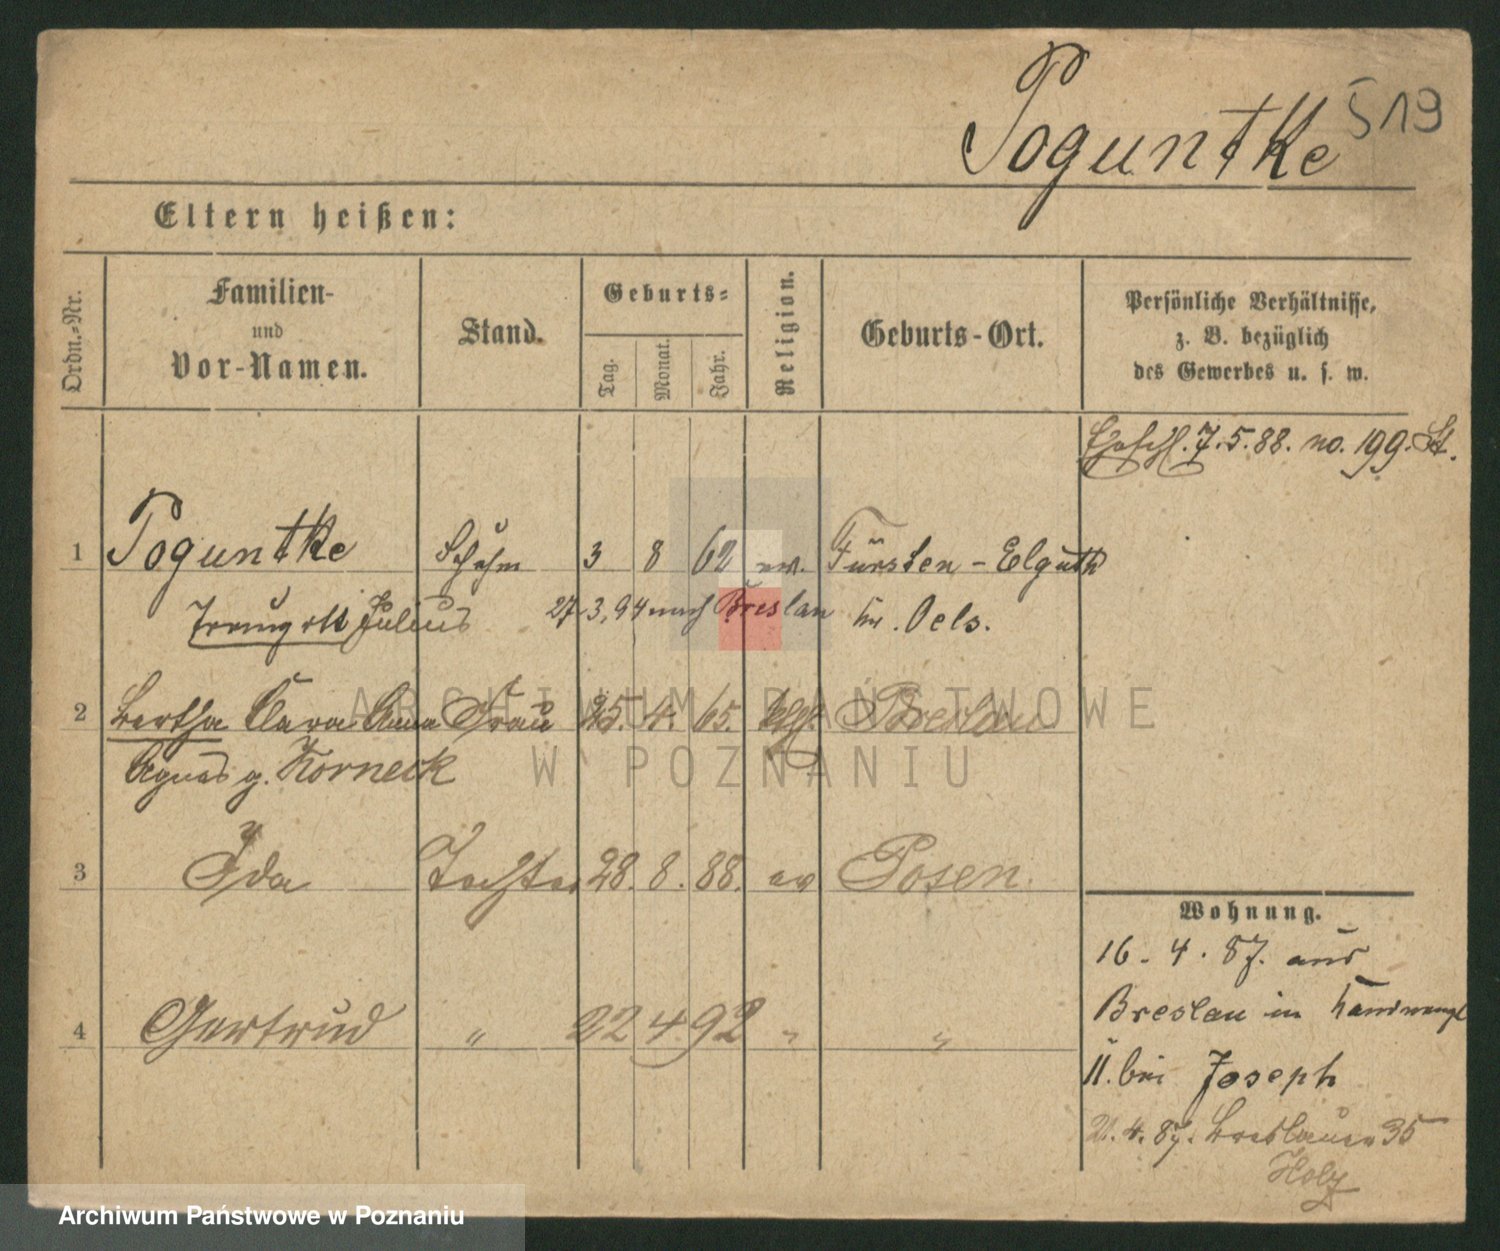 Poguntke
519
Eltern heißen:
Ordn.-Nr.
Familien-
und
Vor-Namen.
Stand.
Geburts-
Tag.
Monat.
Jahr.
Religion.
Geburts-Ort.
Persönliche Verhältnisse,
z. B. bezüglich
des Gewerbes u. s. w.
Eheschl. 7.5.88. no. 199. St.
1 Poguntke 3 8 62 ev. Fürsten-Elguth
Traugott Julius 27.3.94 nach Breslau Kr. Oels.
2 Bertha Clara Anna Frau 25. 4. 65. Breslau
Agnes g. Korneck
3 Ida Tochter 28. 8. 88. ev Posen.
4 Gertrud " 22 4. 92 " "
Wohnung.
16. 4. 87. aus
Breslau in
11. bei Joseph
21. 4. 87. Breslauer 35
Holz
ARCHIWUM PAŃSTWOWE
W POZNANIU
Archiwum Państwowe w Poznaniu